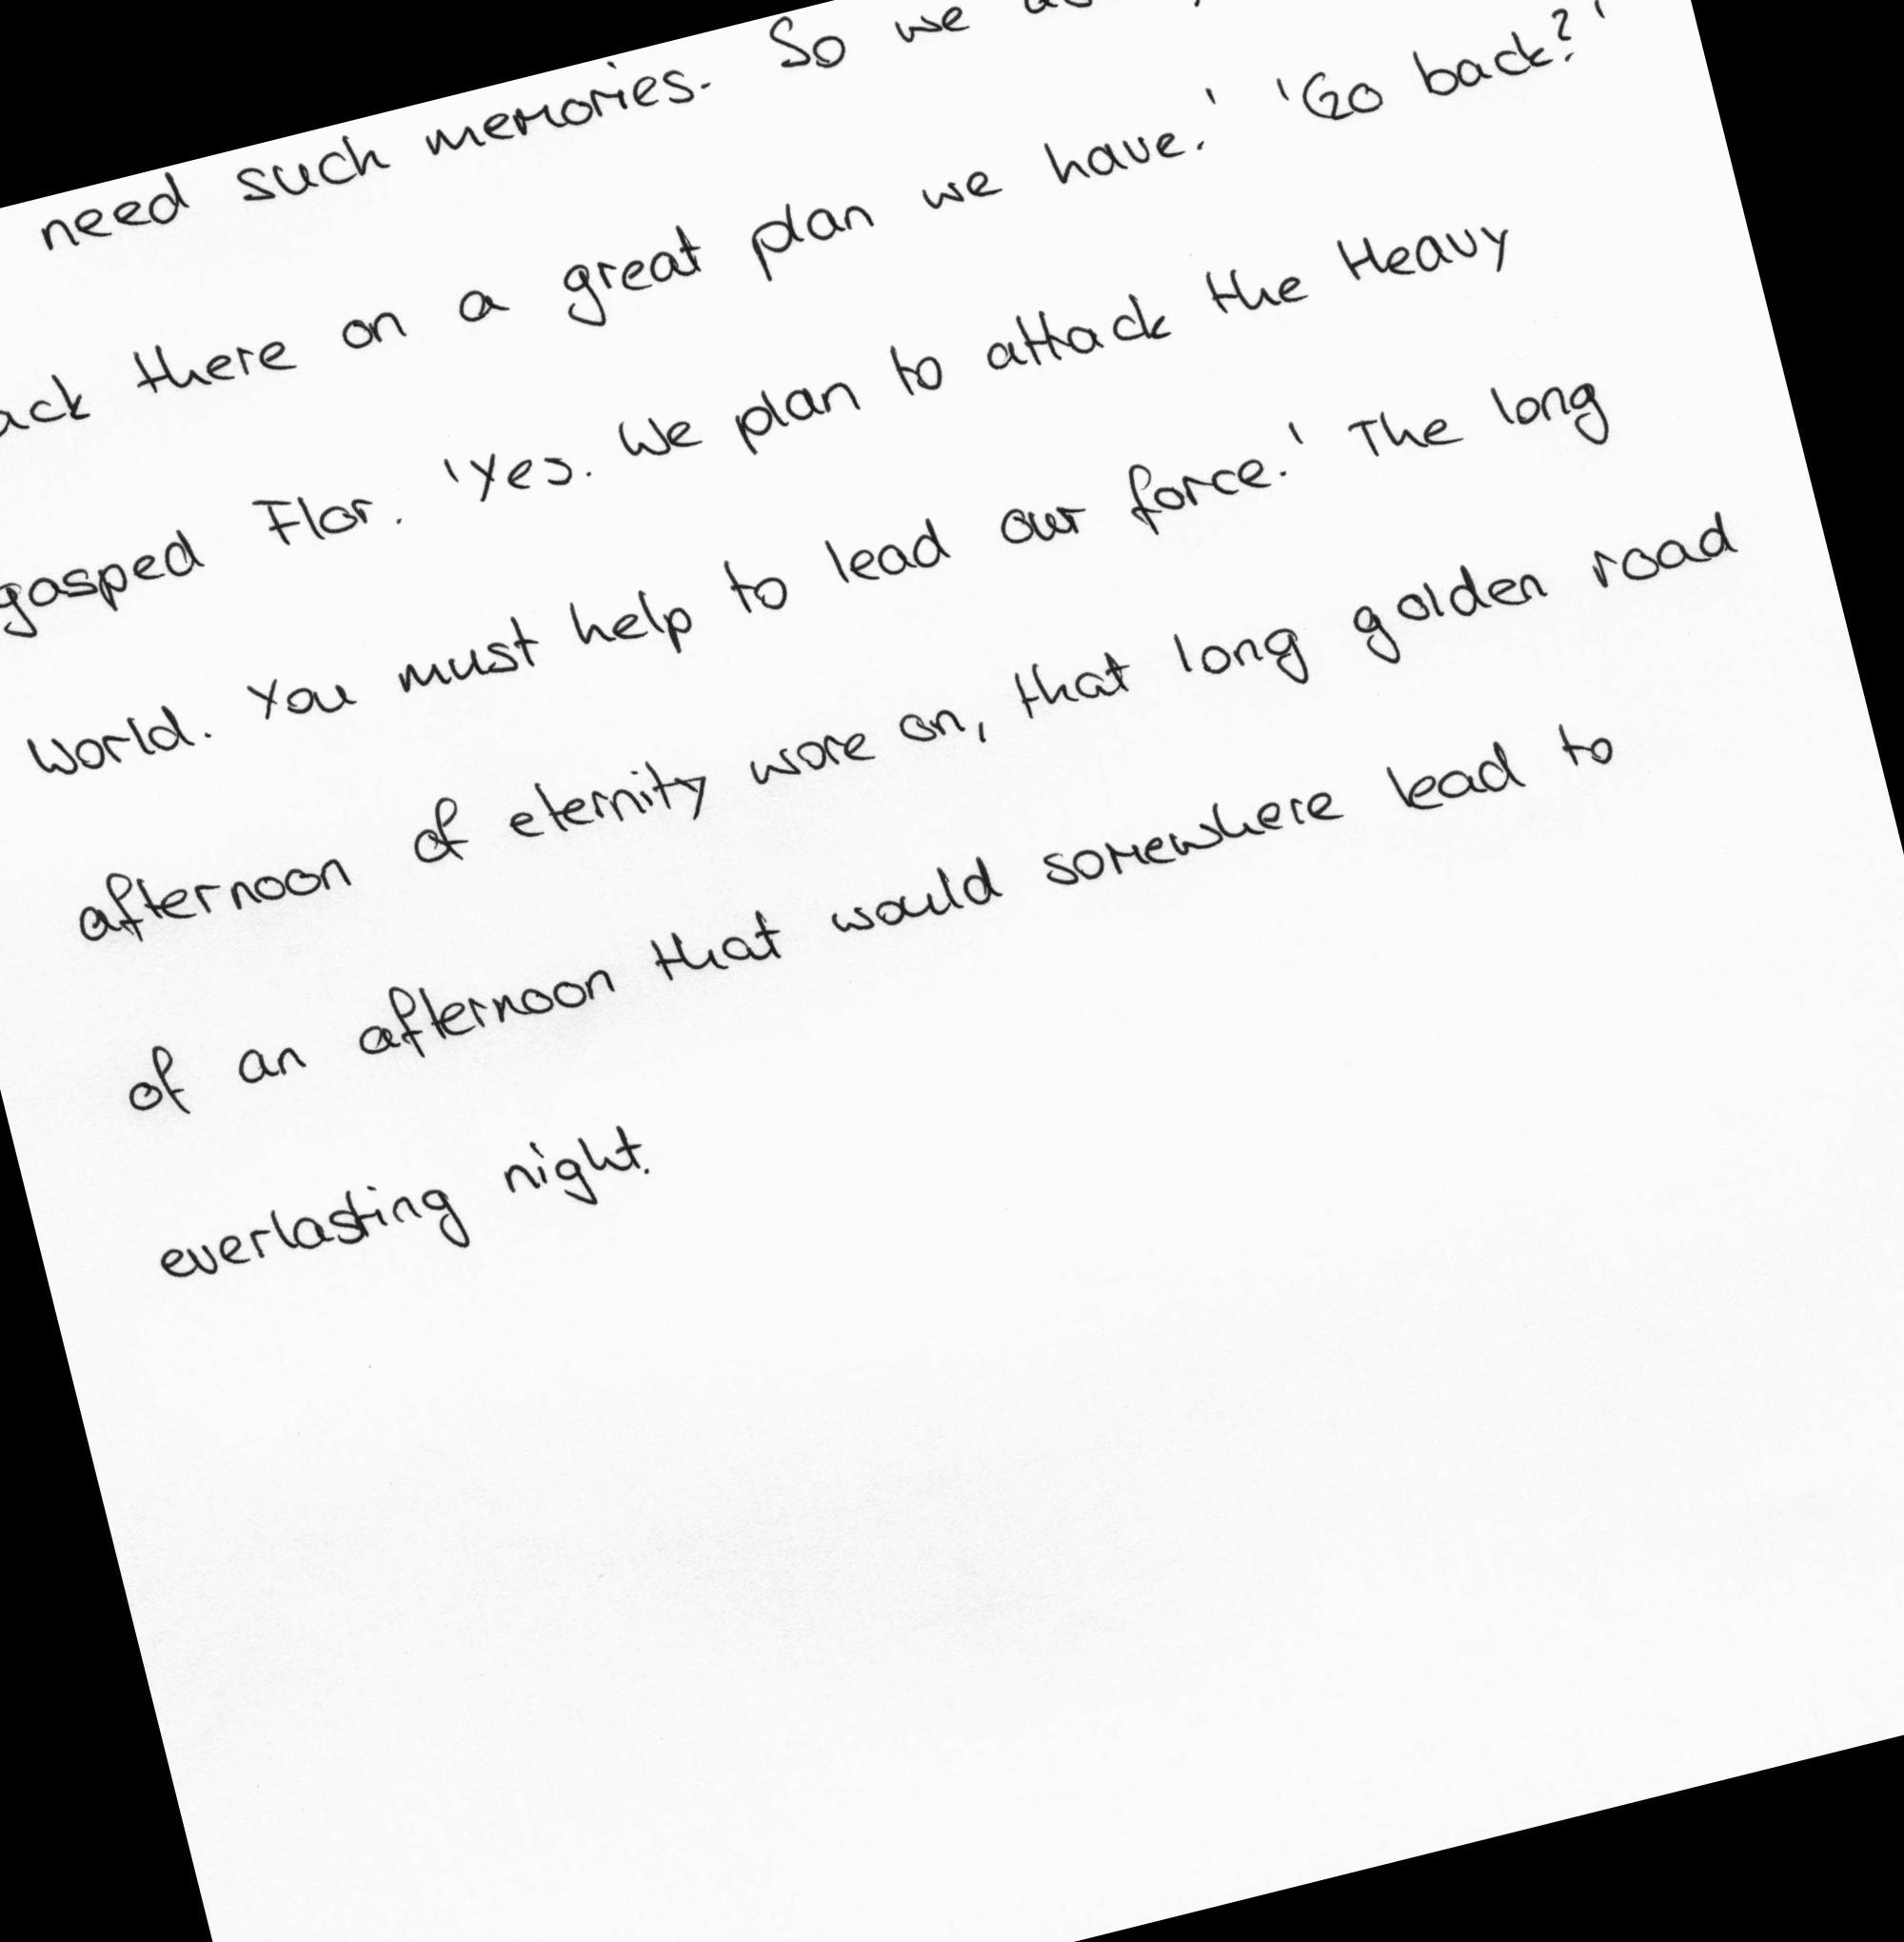 need such memories. So we
there on a great plan we have.' 'Go back?'
gasped Flor. 'Yes. We plan to attack the Heavy
World. You must help to lead our force.' The long
afternoon of eternity wore on, that long golden road
of an afternoon that would somewhere lead to
everlasting night.